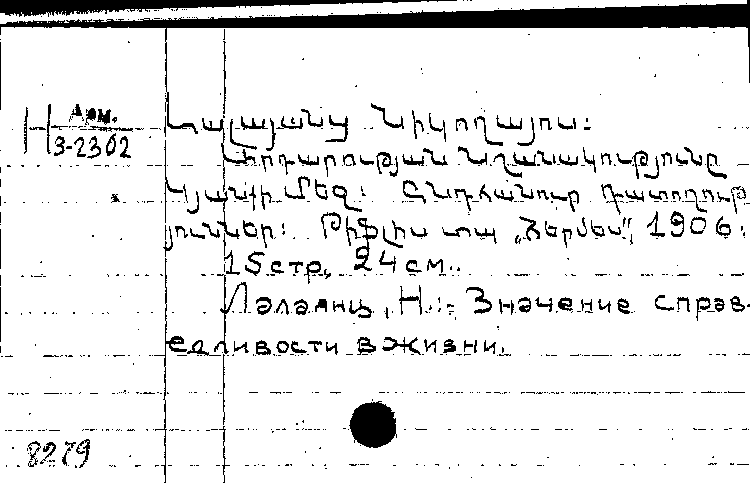 Арм.
Н 3-2302
Լալայանց Նիկողայոս:
Արդարության նշանակությունը
կյանքի մեջ: Ընդհանուր դատողութ
յուններ: Թիֆլիս տպ. „Հերմես", 1906:
15 стр., 24 см.
Лалаянц, Н.:- Значение справ-
едливости в жизни.
8279